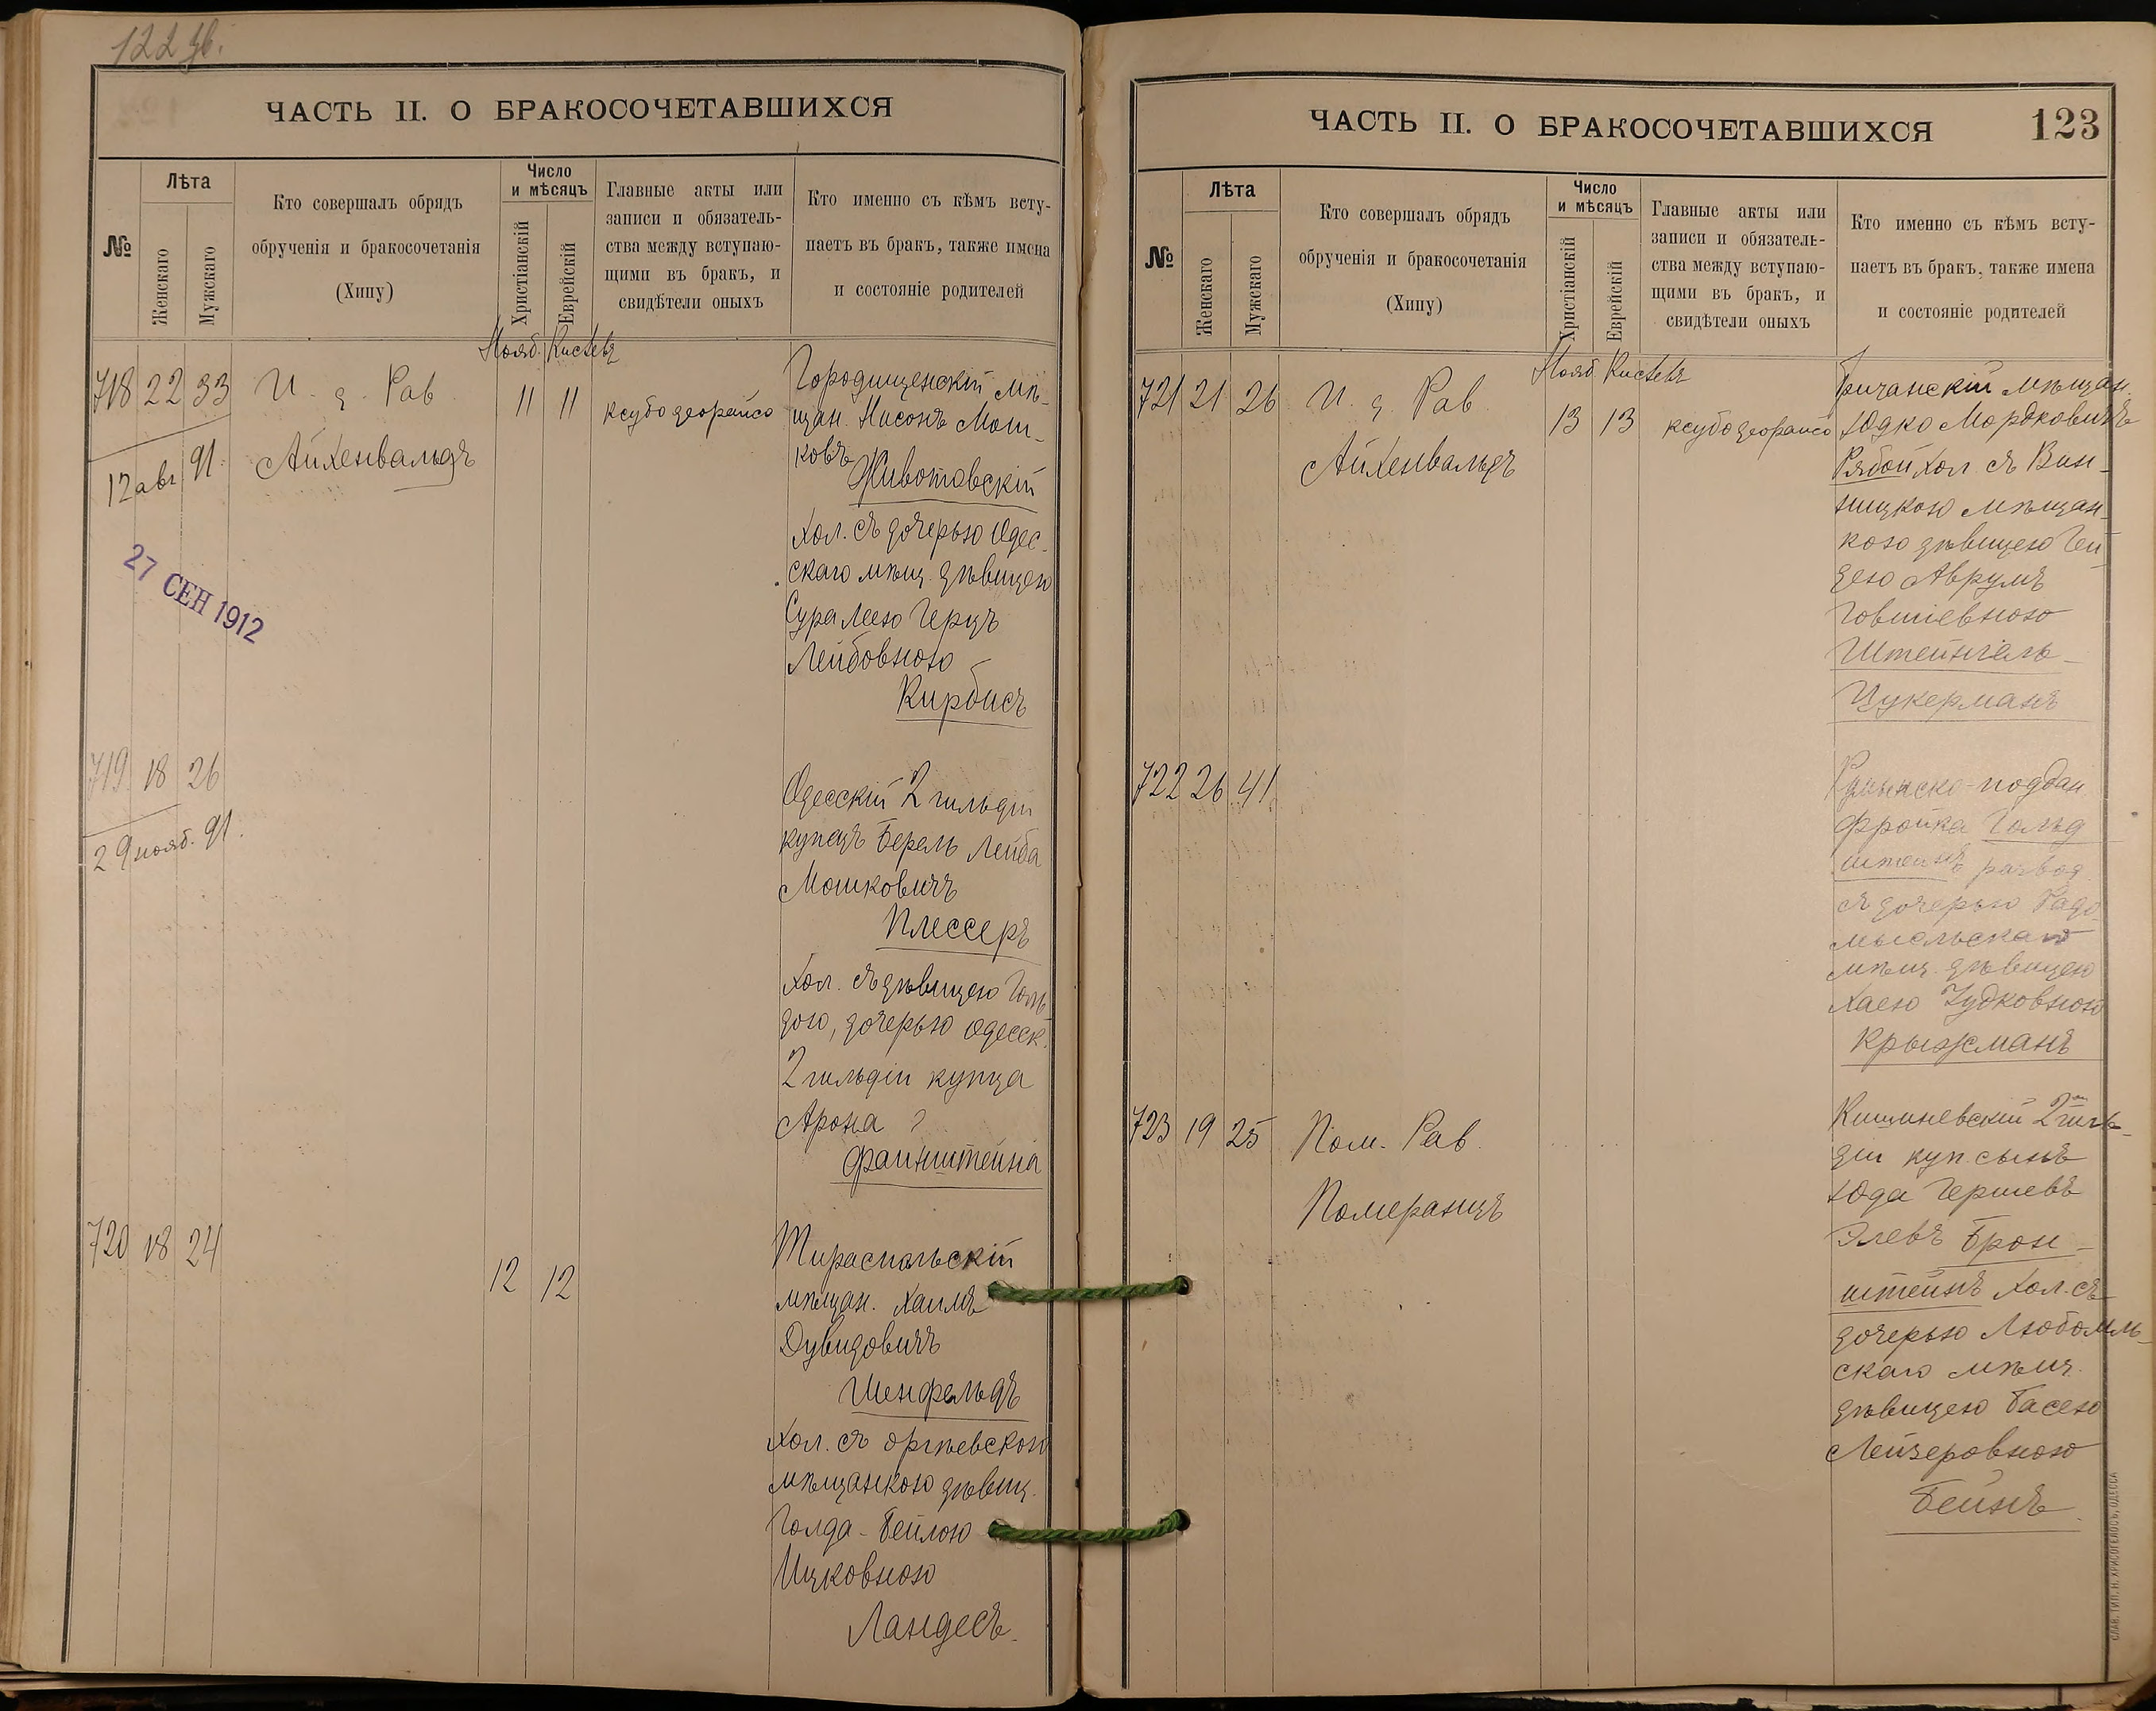 122 зв.
ЧАСТЬ II. О БРАКОСОЧЕТАВШИХСЯ
№
Лѣта
Женскаго
Мужскаго
Кто совершалъ обрядъ
обрученія и бракосочетанія
(Хипу)
Число
и мѣсяцъ
Христіанскій
Еврейскій
Главные акты или
записи и обязатель-
ства между вступаю-
щими въ бракъ, и
свидѣтели оныхъ
Кто именно съ кѣмъ всту-
паетъ въ бракъ, также имена
и состояніе родителей
Нояб. Кислевъ
718 22 33 И. д. Рав
Айхенвальдъ
11 11
ксубо деорайсо
Городищенскій мѣ-
щан. Нисонъ Мош-
ковъ
Животовскій
хол. съ дочерью Одес-
скаго мѣщ. дѣвицею
Сура Леею Герцъ
Лейбовною
Кирбисъ
12 авг 91.
27 СЕН 1912
719 18 26
29 нояб. 91.
Одесскій 2 гильдіи
купецъ Берель Лейба
Мошковичъ
Плессеръ
хол. съ дѣвицею Голь-
дою, дочерью Одесск.
2 гильдіи купца
Арона ?
Файнштейна
720 18 24
12 12
Тираспольскій
мѣщан. Хаимъ
Дувидовичъ
Шенфельдъ
хол. съ оргѣевскою
мѣщанкою дѣвиц.
Голда-Бейлою
Ицковною
Ландесъ.
ЧАСТЬ II. О БРАКОСОЧЕТАВШИХСЯ
123
№
Лѣта
Женскаго
Мужскаго
Кто совершалъ обрядъ
обрученія и бракосочетанія
(Хипу)
Число
и мѣсяцъ
Христіанскій
Еврейскій
Главные акты или
записи и обязатель-
ства между вступаю-
щими въ бракъ, и
свидѣтели оныхъ
Кто именно съ кѣмъ всту-
паетъ въ бракъ, также имена
и состояніе родителей
Нояб. Кислевъ
721 21 26 И. д. Рав
Айхенвальдъ
13 13
ксубо деорайсо
Бричанскій мѣщан.
Юдко Мордковичъ
Рябой хол. съ Вин-
ницкою мѣщан-
кою дѣвицею Ген-
дею Аврумъ
Говшіевною
Штейнгель-
Цукерманъ
722 26 41
Румынско-поддан
Фройка Гольд
штейнъ развод.
съ дочерью Радо-
мысльскаго
мѣщ. дѣвицею
Хаею Іудковною
Крыжманъ
723 19 25 Пом. Рав.
Померанцъ
Кишиневскій 2й гиль-
діи куп. сынъ
Юда Гершевъ
Элевъ Брон-
штейнъ хол. съ
дочерью Любомль-
скаго мѣщ.
дѣвицею Басею
Лейзеровною
Бейнъ.
СЛАВ. ТИП. Н. ХРИСОГЕЛОСЪ, ОДЕССА